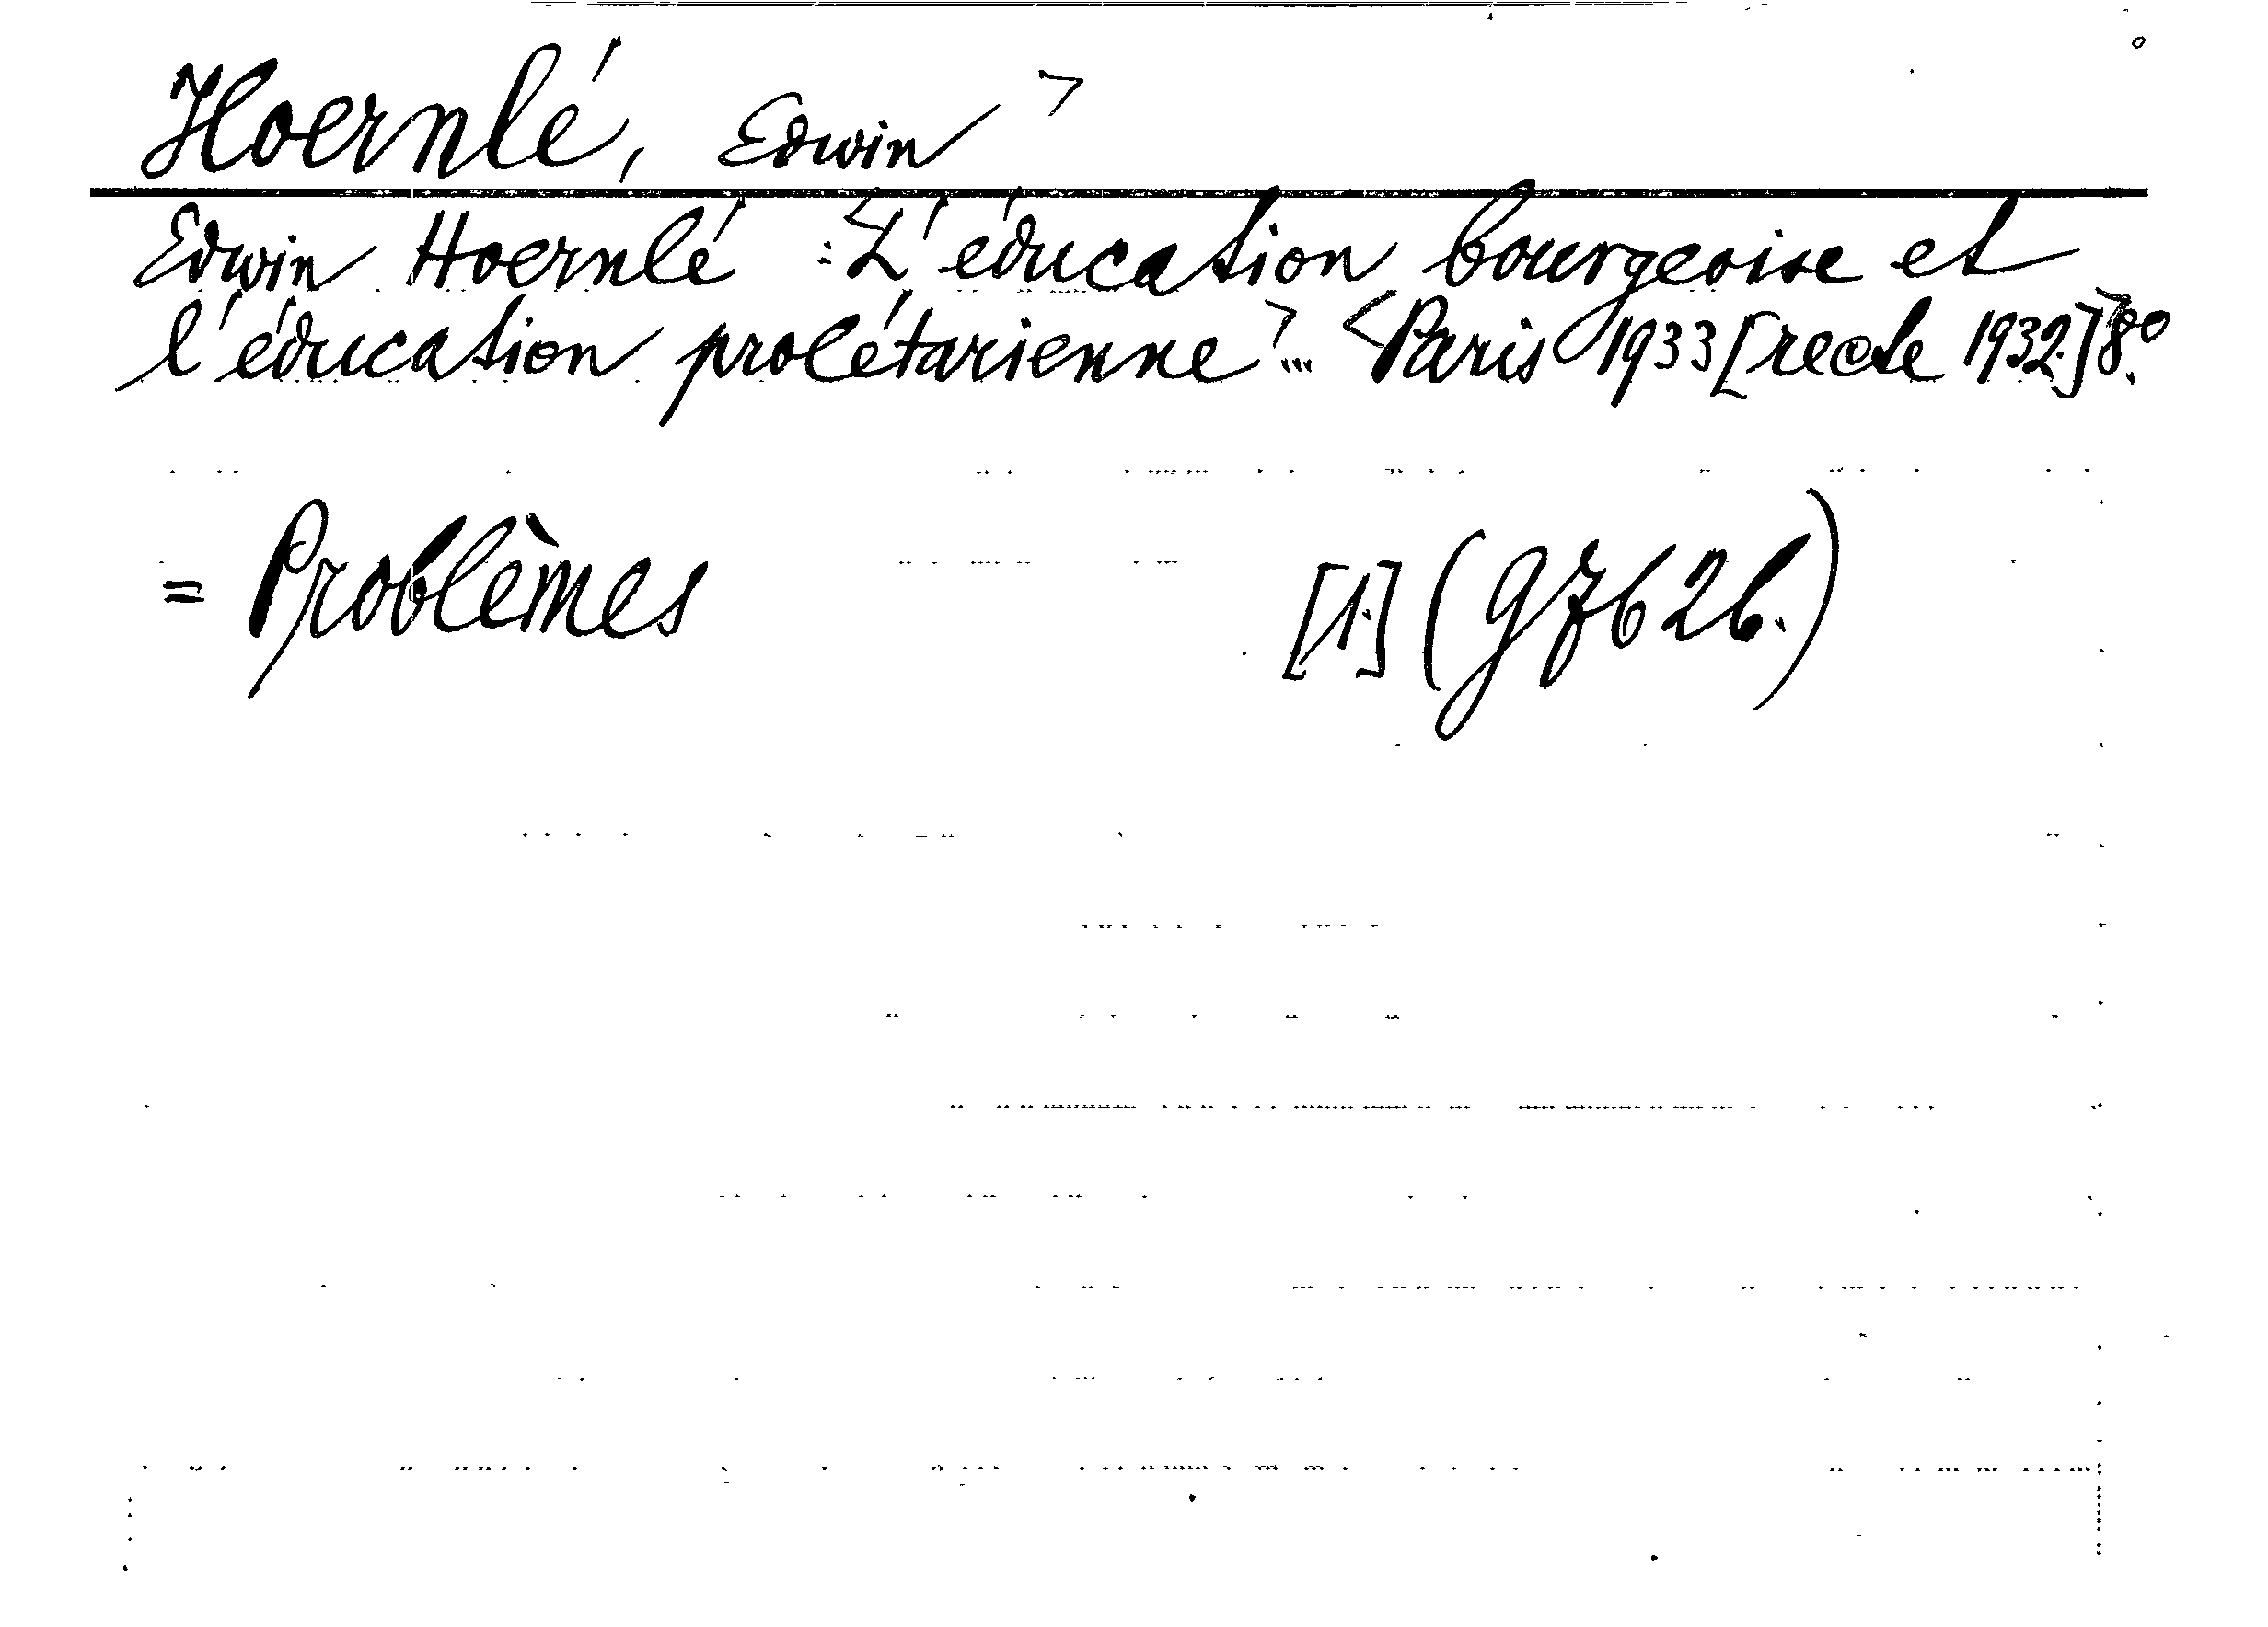 Hoernlé, Edwin >
Edwin Hoernlé: <L'éducation bourgeoise et
l'éducation prolétarienne>... <Paris 1933 [recte 1932.]> 8º.
= Problèmes [1.] (97626.)